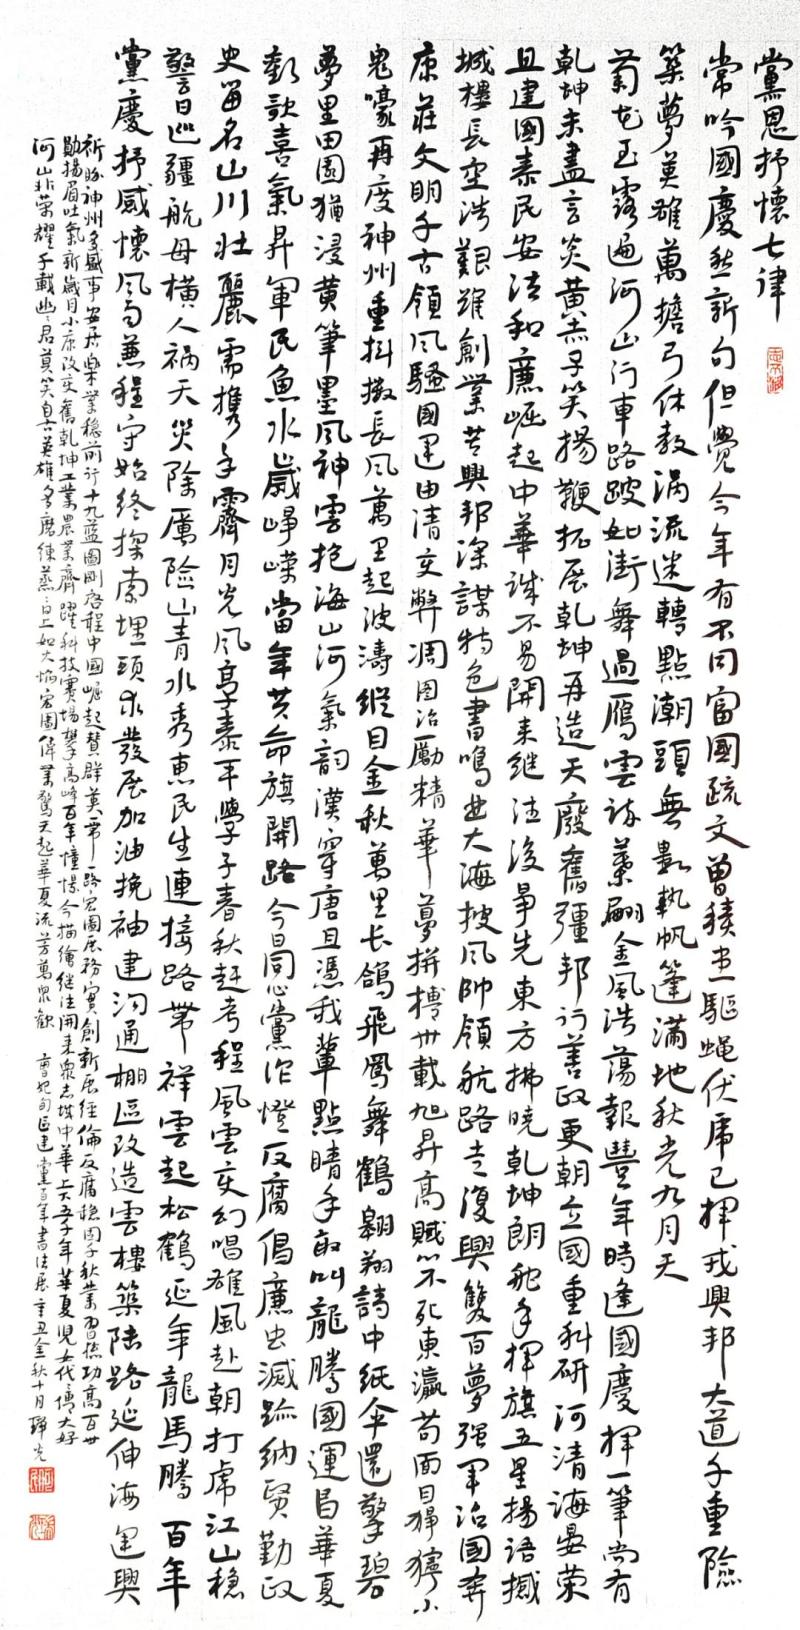 黨恩抒懷七律
常吟國慶愁新句但覺今年有不同富國疏文曾積患驅蠅伏虎已揮戎興邦大道千重險
築夢英雄萬擔弓休教渦流迷轉點潮頭無數執帆篷滿地秋光九月天
菊花玉露遍河山行車路跛如街舞過雁雲詩藥翩金風浩蕩報豐年時逢國慶揮一筆尚有
乾坤未盡言炎黃赤子笑揚鞭拓展乾坤再造天廢舊疆邦行善政更朝立國重科研河清海晏榮
且建國泰民安法和廉崛起中華誠不易開來繼往後爭先東方拂曉乾坤朗舵手揮旗五星揚語撼
城樓長空浩艱難創業苦興邦深謀特色書鳴曲大海披風帥領航路走復興雙百夢強軍治國奔
康莊文明千古領風騷國運由清變弊凋圖治勵精華夢拼搏卅載旭昇高賊心不死東瀛苟面目猙獰小
鬼嚎再度神州重抖擻長風萬里起波濤縱目金秋萬里長鴿飛鳳舞鶴翱翔詩中紙傘還擎碧
夢里田園猶浸黃筆墨風神雲抱海山河氣韵漢穿唐且憑我輩點睛手敢叫龍騰國運昌華夏
歡歌喜氣昇軍民魚水歲崢嶸當年共命旗開路今日同心黨作燈反腐倡廉虫滅跡納賢勤政
史留名山川壯麗需攜手霽月光風享泰平學子春秋赶考程風雲變幻唱雄風赴朝打虎江山穩
警日巡疆航母橫人禍天災除厲險山青水秀惠民生連接路帶祥雲起松鶴延年龍馬騰百年
黨慶抒感懷風雨兼程守始終探索埋頭求發展加油挽袖建溝通棚區改造雲樓築陸路延伸海運興
祈盼神州多盛事安居樂業穩前行十九藍圖剛啓程中國崛起贊群英帶一路宏圖展務實創新展經倫反腐穩固千秋業習孫功高百世
勛揚眉吐氣新歲月小康改變舊乾坤工業農業齊躍科技賽場攀高峰百年憧憬今描繪繼往開來眾志城中華上下五千年華夏兒女代傳大好
河山非榮耀千載幽幽君莫笑自古英雄多磨練蒸蒸日上如火焰宏圖偉業驚天起華夏流芳萬眾歡 曹妃甸區建黨百年書法展辛丑金秋十月 光